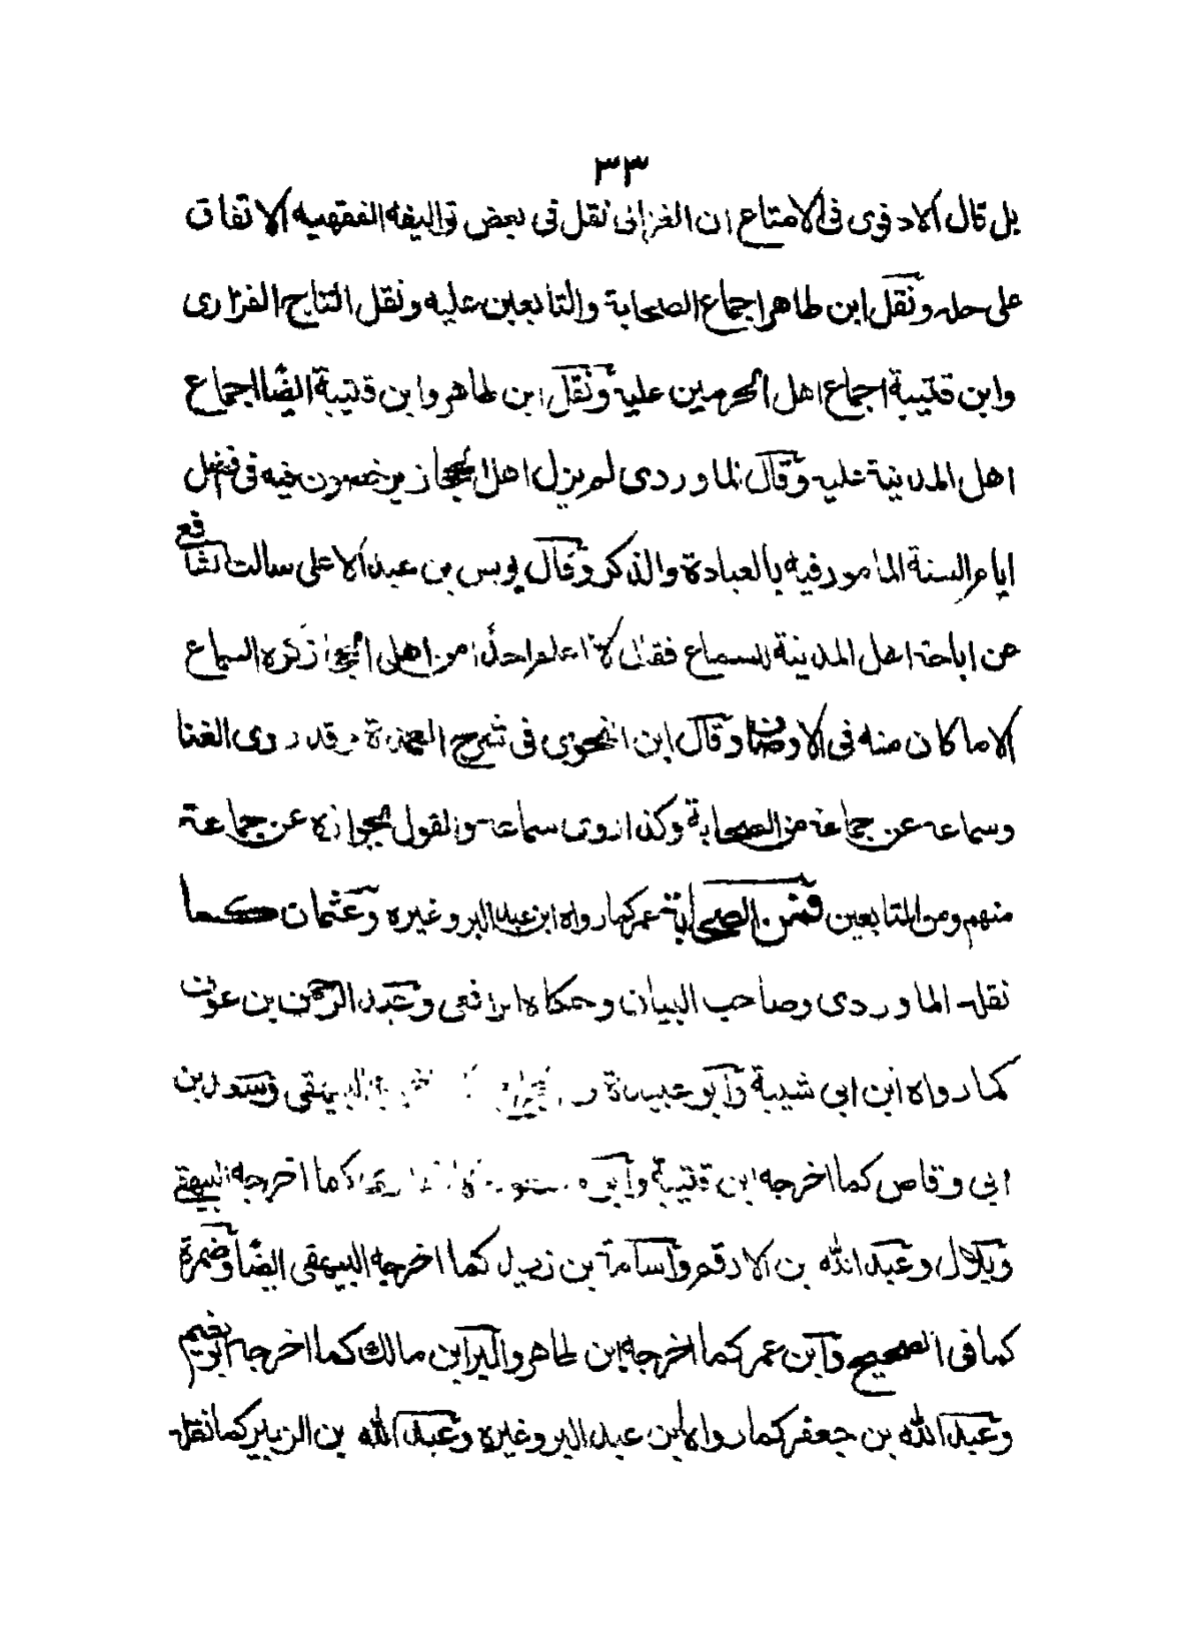 ٣٣
بل قال الادفوى فى الامتاع ان الغزالى نقل فى بعض تواليفه الفقهيه الاتفاق
على حله ونقل ابن طاهر اجماع الصحابة والتابعين عليه ونقل التاج الفزارى
وابن قتيبة اجماع اهل الحرمين عليه ونقل ابن طاهر وابن قتيبة ايضًا اجماع
اهل المدينة عليه وقال الماوردى لم يزل اهل الحجاز يرخصون فيه فى فضل
ايام السنة المامور فيه بالعبادة والذكر وقال يونس بن عبد الاعلى سالت الشافعى
عن اباحة اهل المدينة للسماع فقال لا اعلم احدًا من اهل الحجاز كره السماع
الا ما كان منه فى الاوصاف وقال ابن النحوى فى شرح العمدة وقد روى الغنا
وسماعه عن جماعة من الصحابة وكذا روى سماعه والقول بجوازه عن جماعة
منهم ومن التابعين فمن الصحابة عمر كما رواه ابن عبد البر وغيره وعثمان كما
نقله الماوردى وصاحب البيان وحكاه الرافعى وعبد الرحمن بن عوف
كما رواه ابن ابى شيبة وابو عبيدة البيهقى وسعد بن
ابى وقاص كما اخرجه ابن قتيبة وابو كما اخرجه البيهقى
وبلال وعبد الله بن الارقم واسامة بن زيد كما اخرجه البيهقى ايضًا وضمرة
كما فى الصحيح وابن عمر كما اخرجه ابن طاهر والبرا بن مالك كما اخرجه ابو نعيم
وعبد الله بن جعفر كما رواه ابن عبد البر وغيره وعبد الله بن الزبير كما نقله